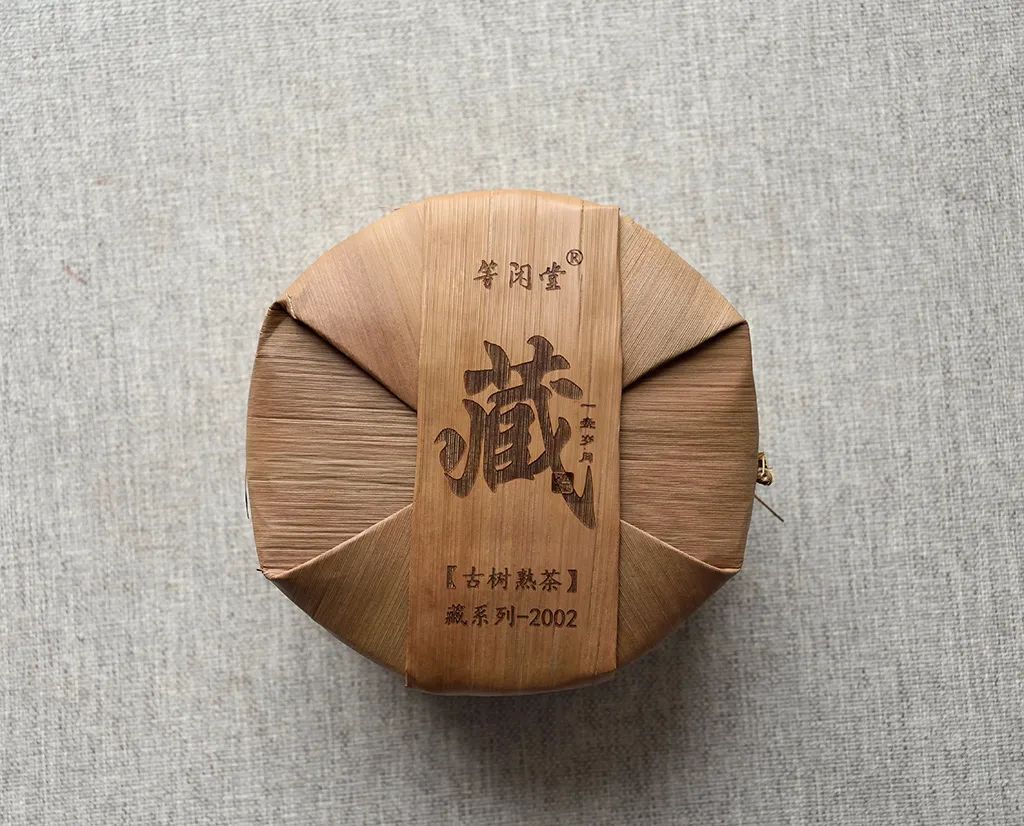 等闲堂®
藏
一藏岁月
【古树熟茶】
藏系列-2002